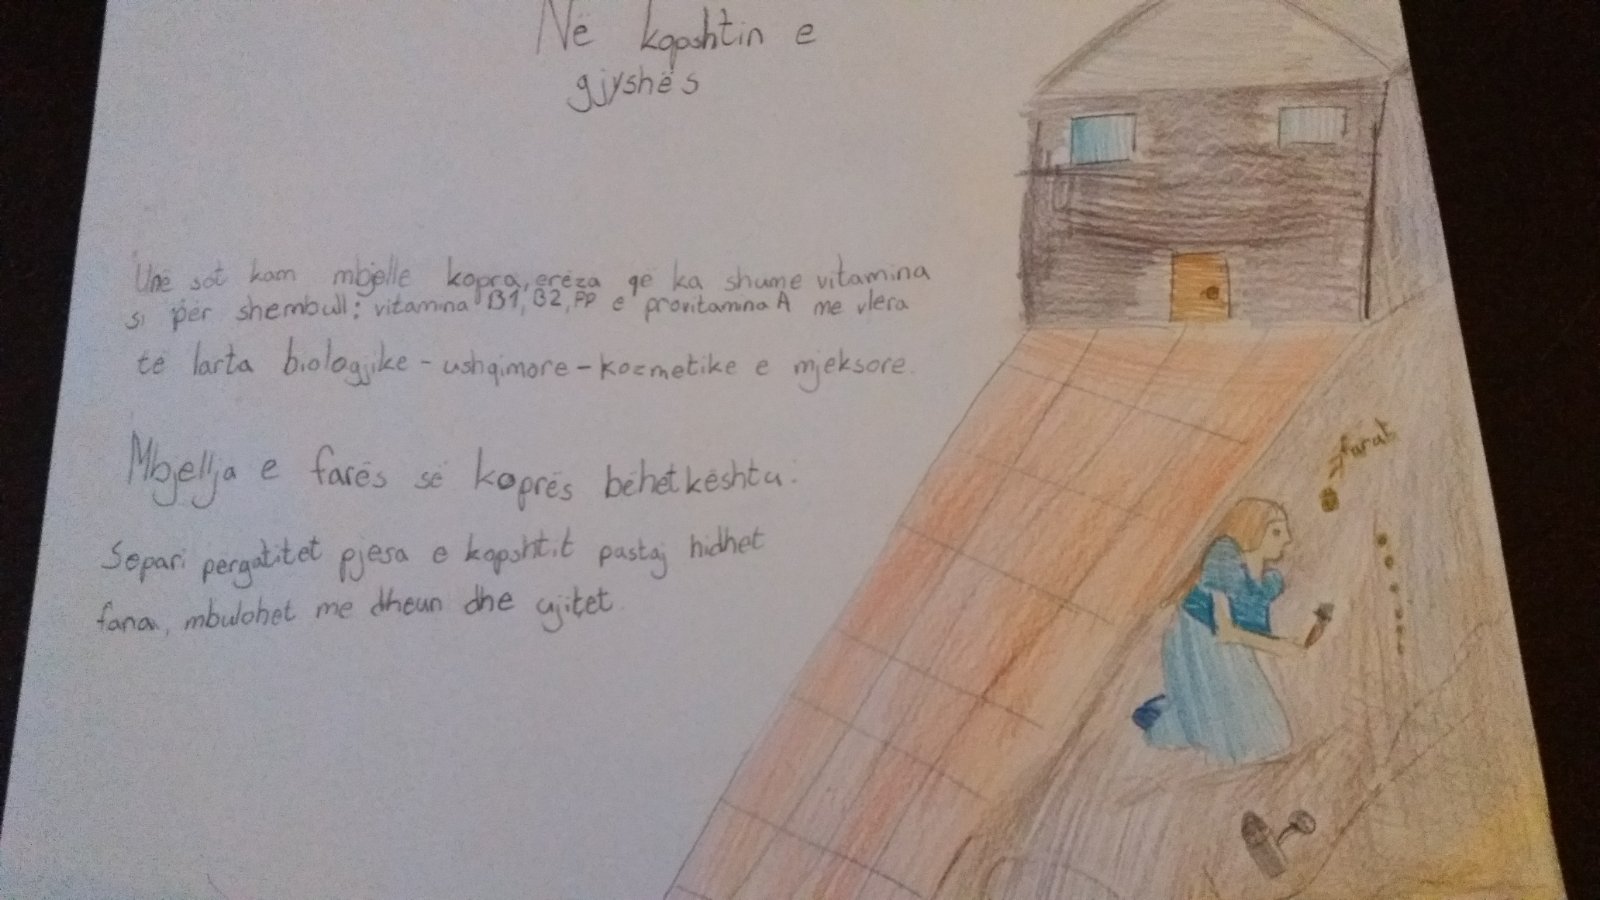 Në kopshtin e
gjyshës
Unë sot kam mbjelle kopra, erëza që ka shume vitamina
si për shembull: vitamina B1, B2, PP e provitamina A me vlera
të larta biologjike - ushqimore - kozmetike e mjeksore.
Mbjellja e farës së koprës bëhet kështu:
Separi përgatitet pjesa e kopshtit pastaj hidhet
fara, mbulohet me dheun dhe ujitet
farat